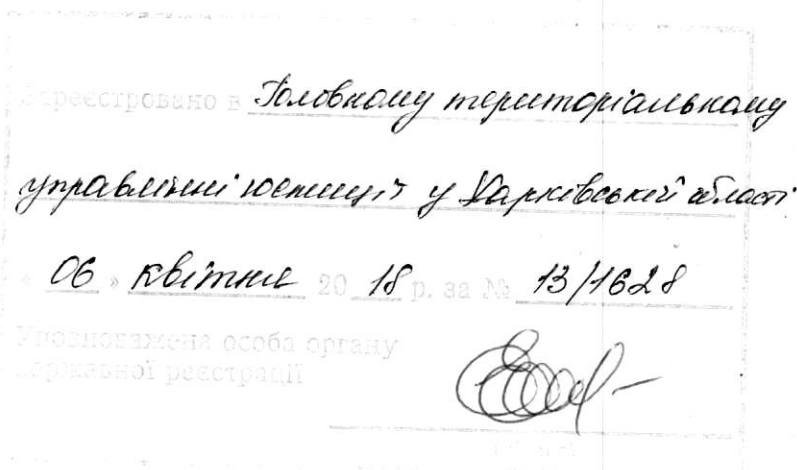 Зареєстровано в Головному територіальному
управлінні юстиції у Харківській області
« 06 » квітня 20 18 р. за № 13/1628
Уповноважена особа органу
державної реєстрації